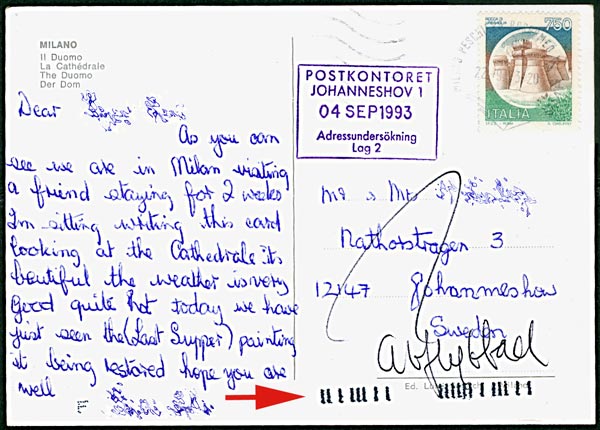 MILANO
Il Duomo
La Cathédrale
The Duomo
Der Dom
Dear
As you can
see we are in Milan visiting
a friend staying for 2 weeks
I'm sitting writing this card
looking at the Cathedrale its
beautiful the weather is very
Good quite hot today we have
just seen the (Last Supper) painting
it being restored hope you are
well
POSTKONTORET
JOHANNESHOV 1
04 SEP 1993
Adressundersökning
Lag 2
750
ITALIA
Mr & Mrs
Nathorstragen 3
12147 Johanneshow
Sweden
Avflyttad
Ed.